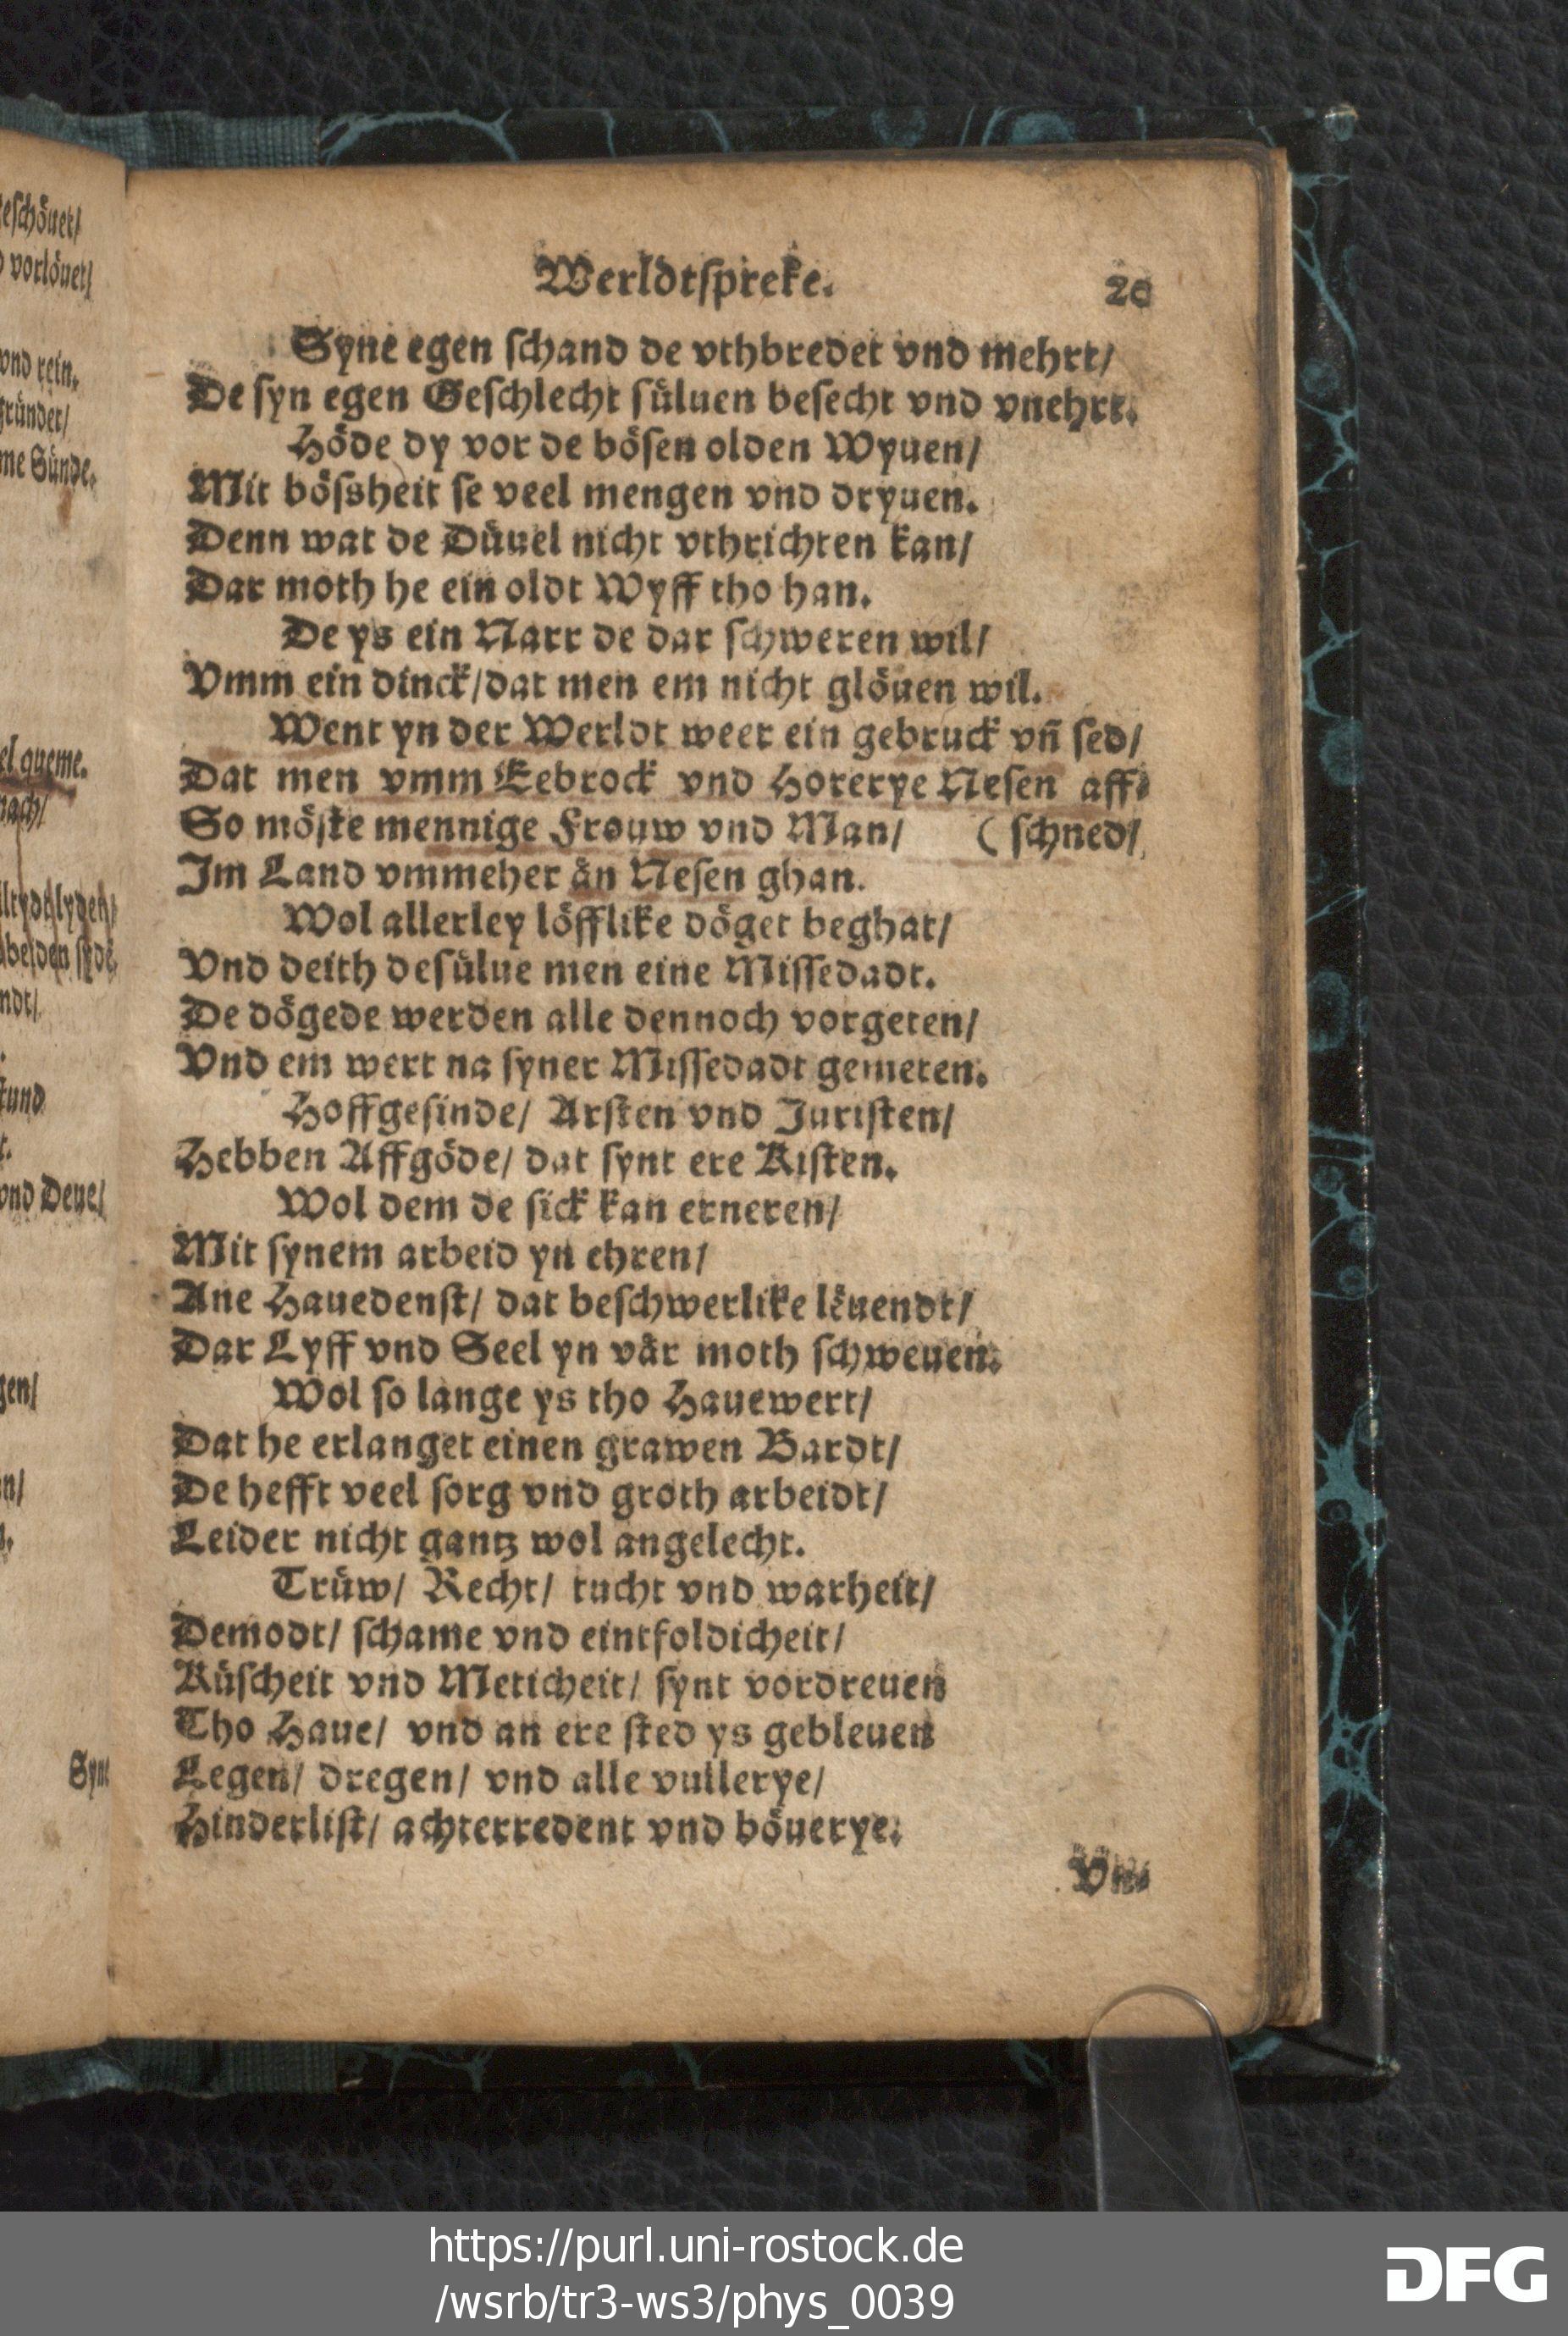 Werldtspreke. 20
Syne egen schand de vthbredet vnd mehrt/
De syn egen Geschlecht sůluen besecht vnd vnehrt.
Hőde dy vor de bősen olden Wyuen/
Mit bőssheit se veel mengen vnd dryuen.
Denn wat de Důuel nicht vthrichten kan/
Dar moth he ein oldt Wyff tho han.
De ys ein Narr de dar schweren wil/
Vmm ein dinck/dat men em nicht glőuen wil.
Went yn der Werldt weer ein gebruck vñ sed/
Dat men vmm Eebrock vnd Horerye Nesen aff⸗
So mőste mennige Frouw vnd Man/ ( schned/
Im Land vmmeher ǎn Nesen ghan.
Wol allerley lőfflike dőget beghat/
Vnd deith desůlue men eine Missedadt.
De dőgede werden alle dennoch vorgeten/
Vnd em wert na syner Missedadt gemeten.
Hoffgesinde/ Arsten vnd Juristen/
Hebben Affgőde/ dat synt ere Kisten.
Wol dem de sick kan erneren/
Mit synem arbeid yn ehren/
Ane Hauedenst/ dat beschwerlike lěuendt/
Dar Lyff vnd Seel yn vǎr moth schweuen.
Wol so lange ys tho Hauewert/
Dat he erlanget einen grawen Bardt/
De hefft veel sorg vnd groth arbeidt/
Leider nicht gantz wol angelecht.
Trůw/ Recht/ tucht vnd warheit/
Demodt/ schame vnd eintfoldicheit/
Kůscheit vnd Meticheit/ synt vordreuen
Tho Haue/ vnd an ere sted ys gebleuen
Legen/ dregen/ vnd alle vullerye/
Hinderlist/ achterredent vnd bőuerye.
eschőuet/
vorlőuet/
vnd rein.
gründet/
me Sünde.
el queme.
nach/
ndt/
fund
vnd Deue/
gen/
n/
Syne
https://purl.uni-rostock.de
/wsrb/tr3-ws3/phys_0039
DFG